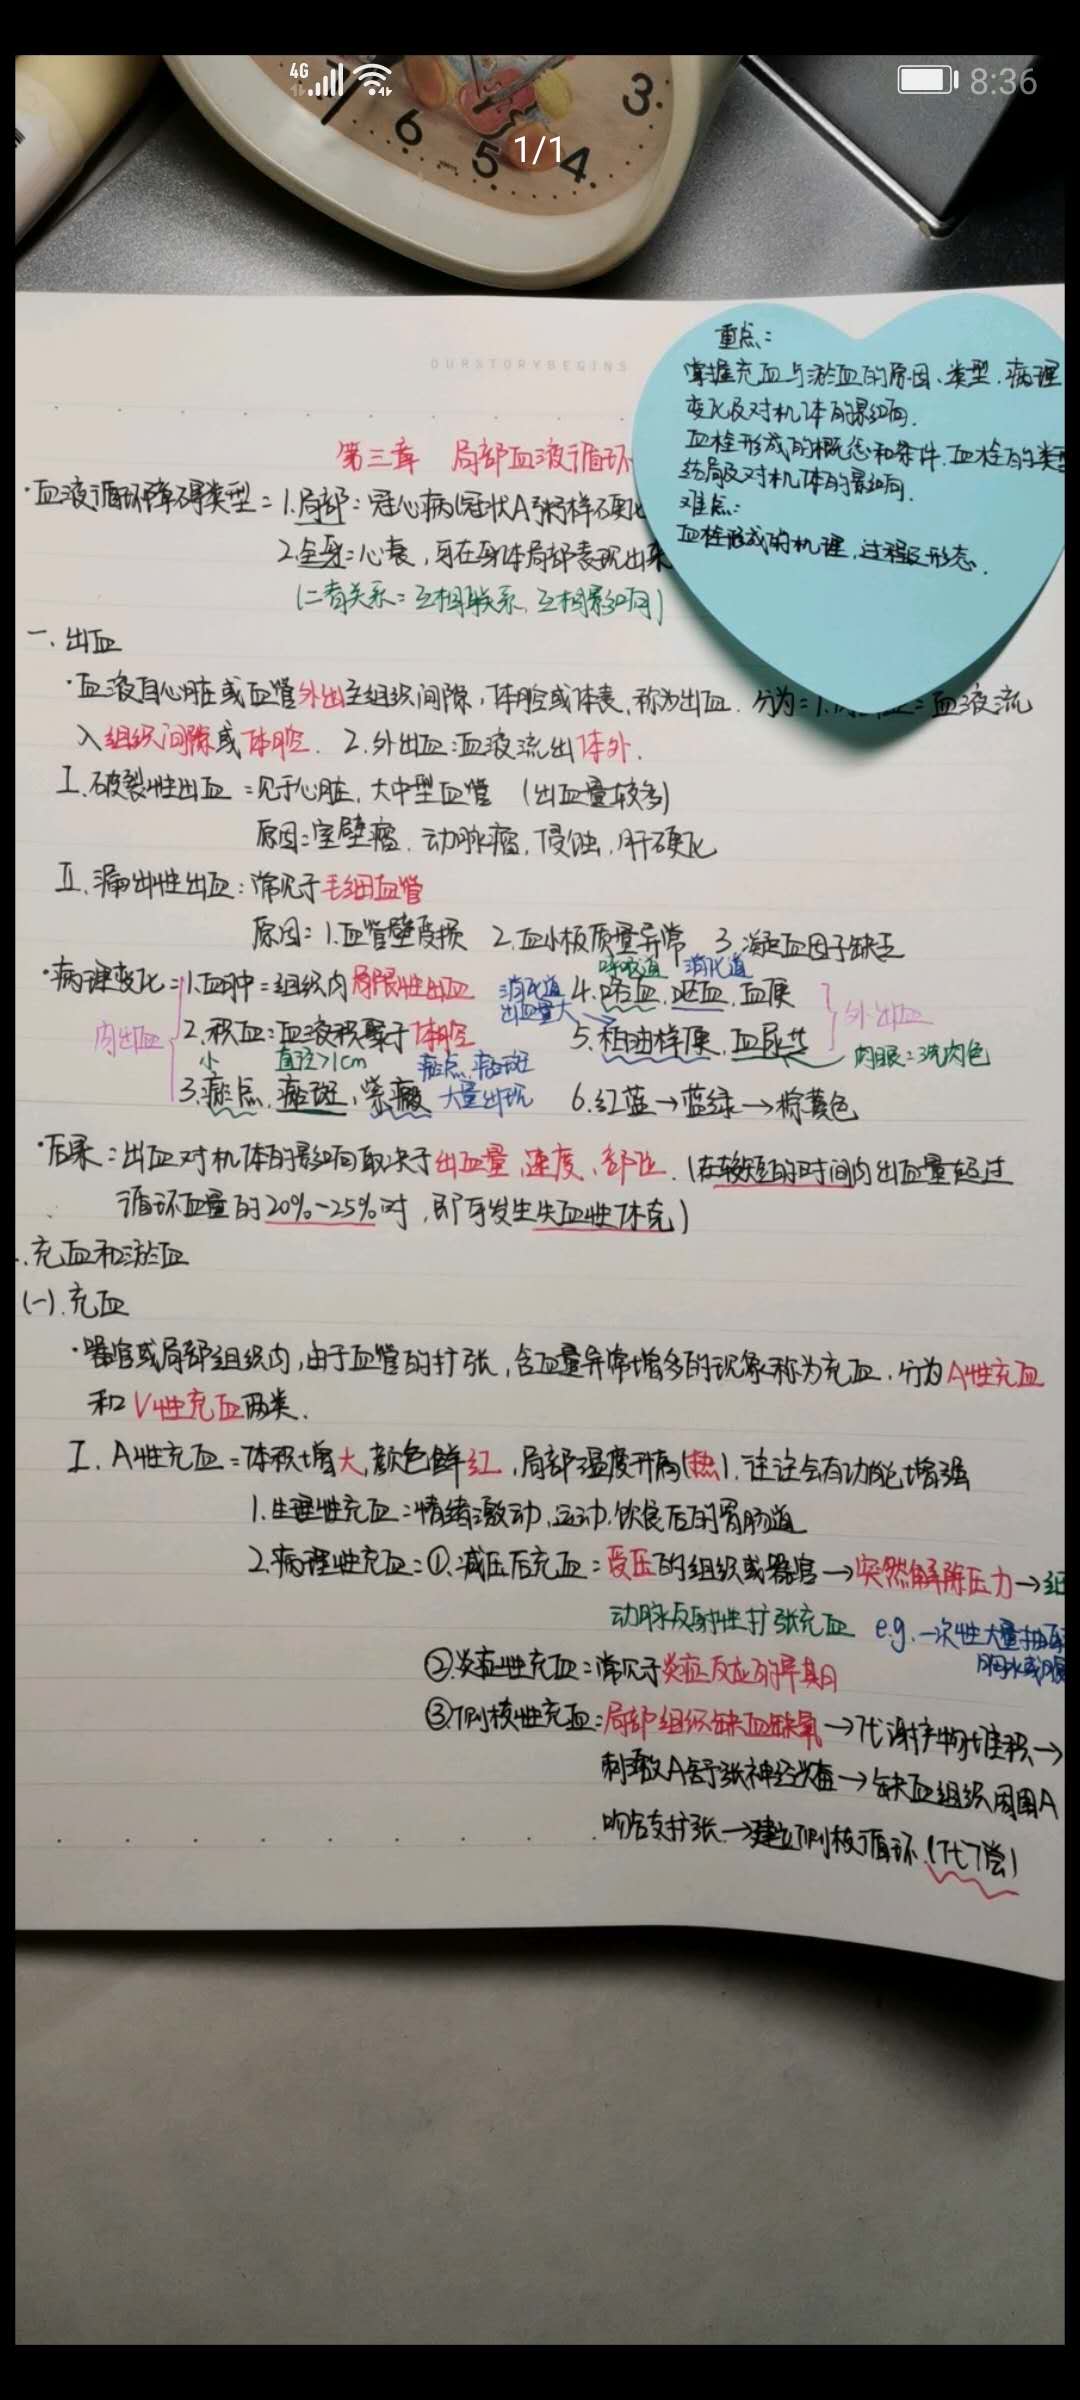 4G
8:36
1/1
3
6
5
4
OURSTORYBEGINS
重点:
掌握充血与淤血的原因、类型、病理
变化及对机体的影响.
血栓形成的概念和条件、血栓的类型
结局及对机体的影响.
难点:
血栓形成的机理,过程及形态.
第三章 局部血液循环
·血液循环障碍类型:1.局部:冠心病(冠状A粥样硬化
2.全身:心衰,可在身体局部表现出来
(二者关系:互相联系,互相影响)
一.出血
·血液自心脏或血管外出至组织间隙,体腔或体表,称为出血.分为:1.内出血:血液流
入组织间隙或体腔. 2.外出血:血液流出体外.
Ⅰ.破裂性出血:见于心脏,大中型血管 (出血量较多)
原因:室壁瘤.动脉瘤,侵蚀,肝硬化
Ⅱ.漏出性出血:常见于毛细血管
原因:1.血管壁受损 2.血小板质量异常 3.凝血因子缺乏
呼吸道 消化道
·病理变化:1.血肿:组织内局限性出血 消化道出血量大 4.咯血,呕血,血便
内出血 2.积血:血液积聚于体腔 5.柏油样便,血尿 外出血
小 直径>1cm 瘀点、瘀斑 肉眼:洗肉色
3.瘀点,瘀斑,紫癜 大量出现 6.红蓝→蓝绿→棕黄色
·后果:出血对机体的影响取决于出血量、速度、部位.(在较短的时间内出血量超过
循环血量的20%-25%时,即可发生失血性休克)
.充血和淤血
(一).充血
·器官或局部组织内,由于血管的扩张,含血量异常增多的现象称为充血.分为A性充血
和V性充血两类.
Ⅰ.A性充血:体积增大,颜色鲜红,局部温度升高(热),往往会有功能增强
1.生理性充血:情绪激动、运动.饮食后的胃肠道
2.病理性充血:①.减压后充血:受压的组织或器官→突然解除压力→细
动脉反射性扩张充血 e.g.一次性大量抽取
胸水或腹
②.炎症性充血:常见于炎症反应的早期
③.侧枝性充血:局部组织缺血缺氧→代谢产物堆积→
刺激A舒张神经兴奋→缺血组织周围A
吻合支扩张→建立侧枝循环.(代偿)